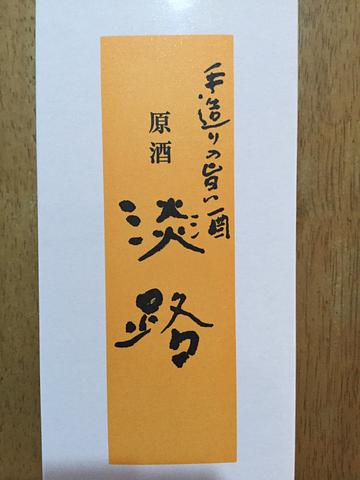 手造りの旨い酒
原酒
淡路